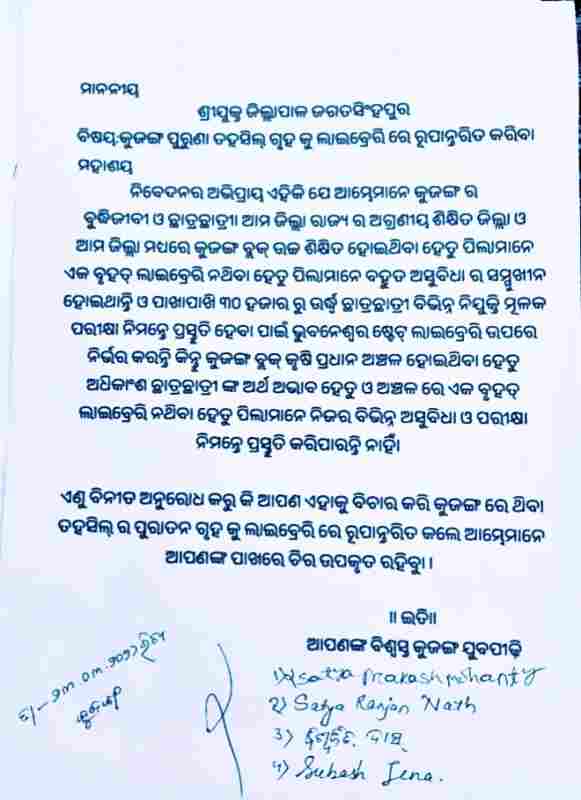 ମାନନୀୟ
ଶ୍ରୀଯୁକ୍ତ ଜିଲ୍ଲାପାଳ ଜଗତସିଂହପୁର
ବିଷୟ:କୁଜଙ୍ଗ ପୁରୁଣା ତହସିଲ୍ ଗୃହ କୁ ଲାଇବ୍ରେରି ରେ ରୂପାନ୍ତରିତ କରିବା
ମହାଶୟ
ନିବେଦନର ଅଭିପ୍ରାୟ ଏହିକି ଯେ ଆମ୍ଭେମାନେ କୁଜଙ୍ଗ ର
ବୁଦ୍ଧିଜୀବୀ ଓ ଛାତ୍ରଛାତ୍ରୀ। ଆମ ଜିଲ୍ଲା ରାଜ୍ୟ ର ଅଗ୍ରଣୀୟ ଶିକ୍ଷିତ ଜିଲ୍ଲା ଓ
ଆମ ଜିଲ୍ଲା ମଧ୍ୟରେ କୁଜଙ୍ଗ ବ୍ଲକ୍ ଉଚ୍ଚ ଶିକ୍ଷିତ ହୋଇଥିବା ହେତୁ ପିଲାମାନେ
ଏକ ବୃହତ୍ ଲାଇବ୍ରେରି ନଥିବା ହେତୁ ପିଲାମାନେ ବହୁତ ଅସୁବିଧା ର ସମ୍ମୁଖୀନ
ହୋଇଥାନ୍ତି ଓ ପାଖାପାଖି ୩୦ ହଜାର ରୁ ଉର୍ଦ୍ଧ୍ବ ଛାତ୍ରଛାତ୍ରୀ ବିଭିନ୍ନ ନିଯୁକ୍ତି ମୂଳକ
ପରୀକ୍ଷା ନିମନ୍ତେ ପ୍ରସ୍ତୁତି ହେବା ପାଇଁ ଭୁବନେଶ୍ୱର ଷ୍ଟେଟ୍ ଲାଇବ୍ରେରି ଉପରେ
ନିର୍ଭର କରନ୍ତି କିନ୍ତୁ କୁଜଙ୍ଗ ବ୍ଲକ୍ କୃଷି ପ୍ରଧାନ ଅଞ୍ଚଳ ହୋଇଥିବା ହେତୁ
ଅଧିକାଂଶ ଛାତ୍ରଛାତ୍ରୀ ଙ୍କ ଅର୍ଥ ଅଭାବ ହେତୁ ଓ ଅଞ୍ଚଳ ରେ ଏକ ବୃହତ୍
ଲାଇବ୍ରେରି ନଥିବା ହେତୁ ପିଲାମାନେ ନିଜର ବିଭିନ୍ନ ଅସୁବିଧା ଓ ପରୀକ୍ଷା
ନିମନ୍ତେ ପ୍ରସ୍ତୁତି କରିପାରନ୍ତି ନାହିଁ।
ଏଣୁ ବିନୀତ ଅନୁରୋଧ କରୁ କି ଆପଣ ଏହାକୁ ବିଚାର କରି କୁଜଙ୍ଗ ରେ ଥିବା
ତହସିଲ୍ ର ପୁରାତନ ଗୃହ କୁ ଲାଇବ୍ରେରି ରେ ରୂପାନ୍ତରିତ କଲେ ଆମ୍ଭେମାନେ
ଆପଣଙ୍କ ପାଖରେ ଚିର ଉପକୃତ ରହିବୁ।
॥ ଇତି॥
ଆପଣଙ୍କ ବିଶ୍ୱସ୍ତ କୁଜଙ୍ଗ ଯୁବପୀଢ଼ି
୧) Satya Prakash Mohanty
୨) Satya Ranjan Nath
୩) ବିଶ୍ୱଜିତ ଦାସ
୪) Subash Jena.
ତା-୨୩.୦୩.୨୦୨୨ରିଖ
କୁଜଙ୍ଗ